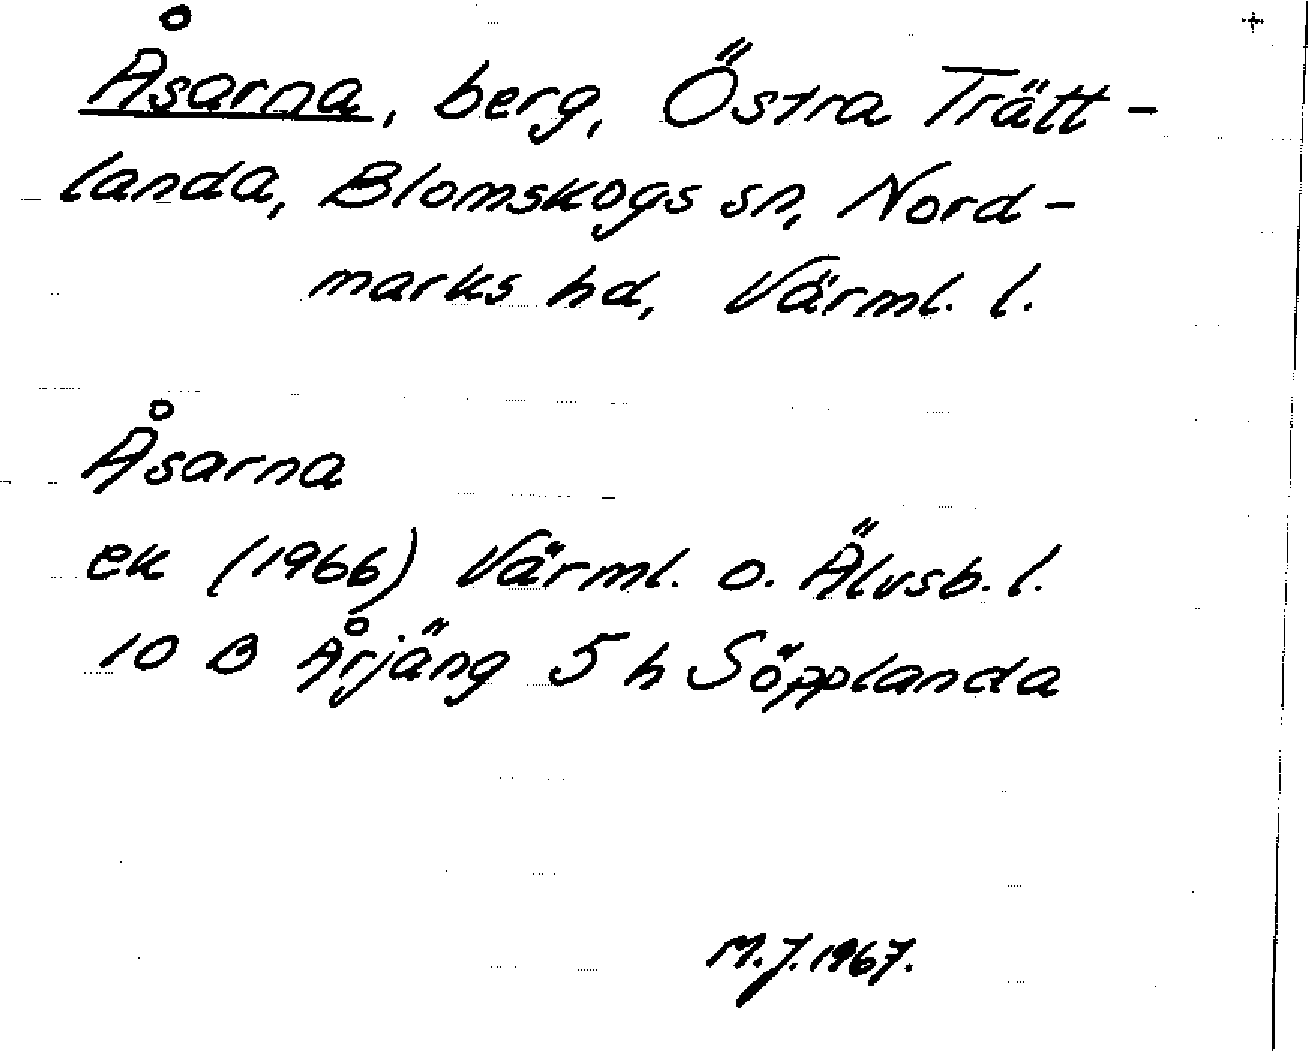 Åsarna, berg, Östra Trätt-
landa, Blomskogs sn, Nord-
marks hd, Värml. l.
Åsarna
ek (1966) Värml. o. Älvsb. l.
10 B Årjäng 5 h Söpplanda
M.J. 1967.